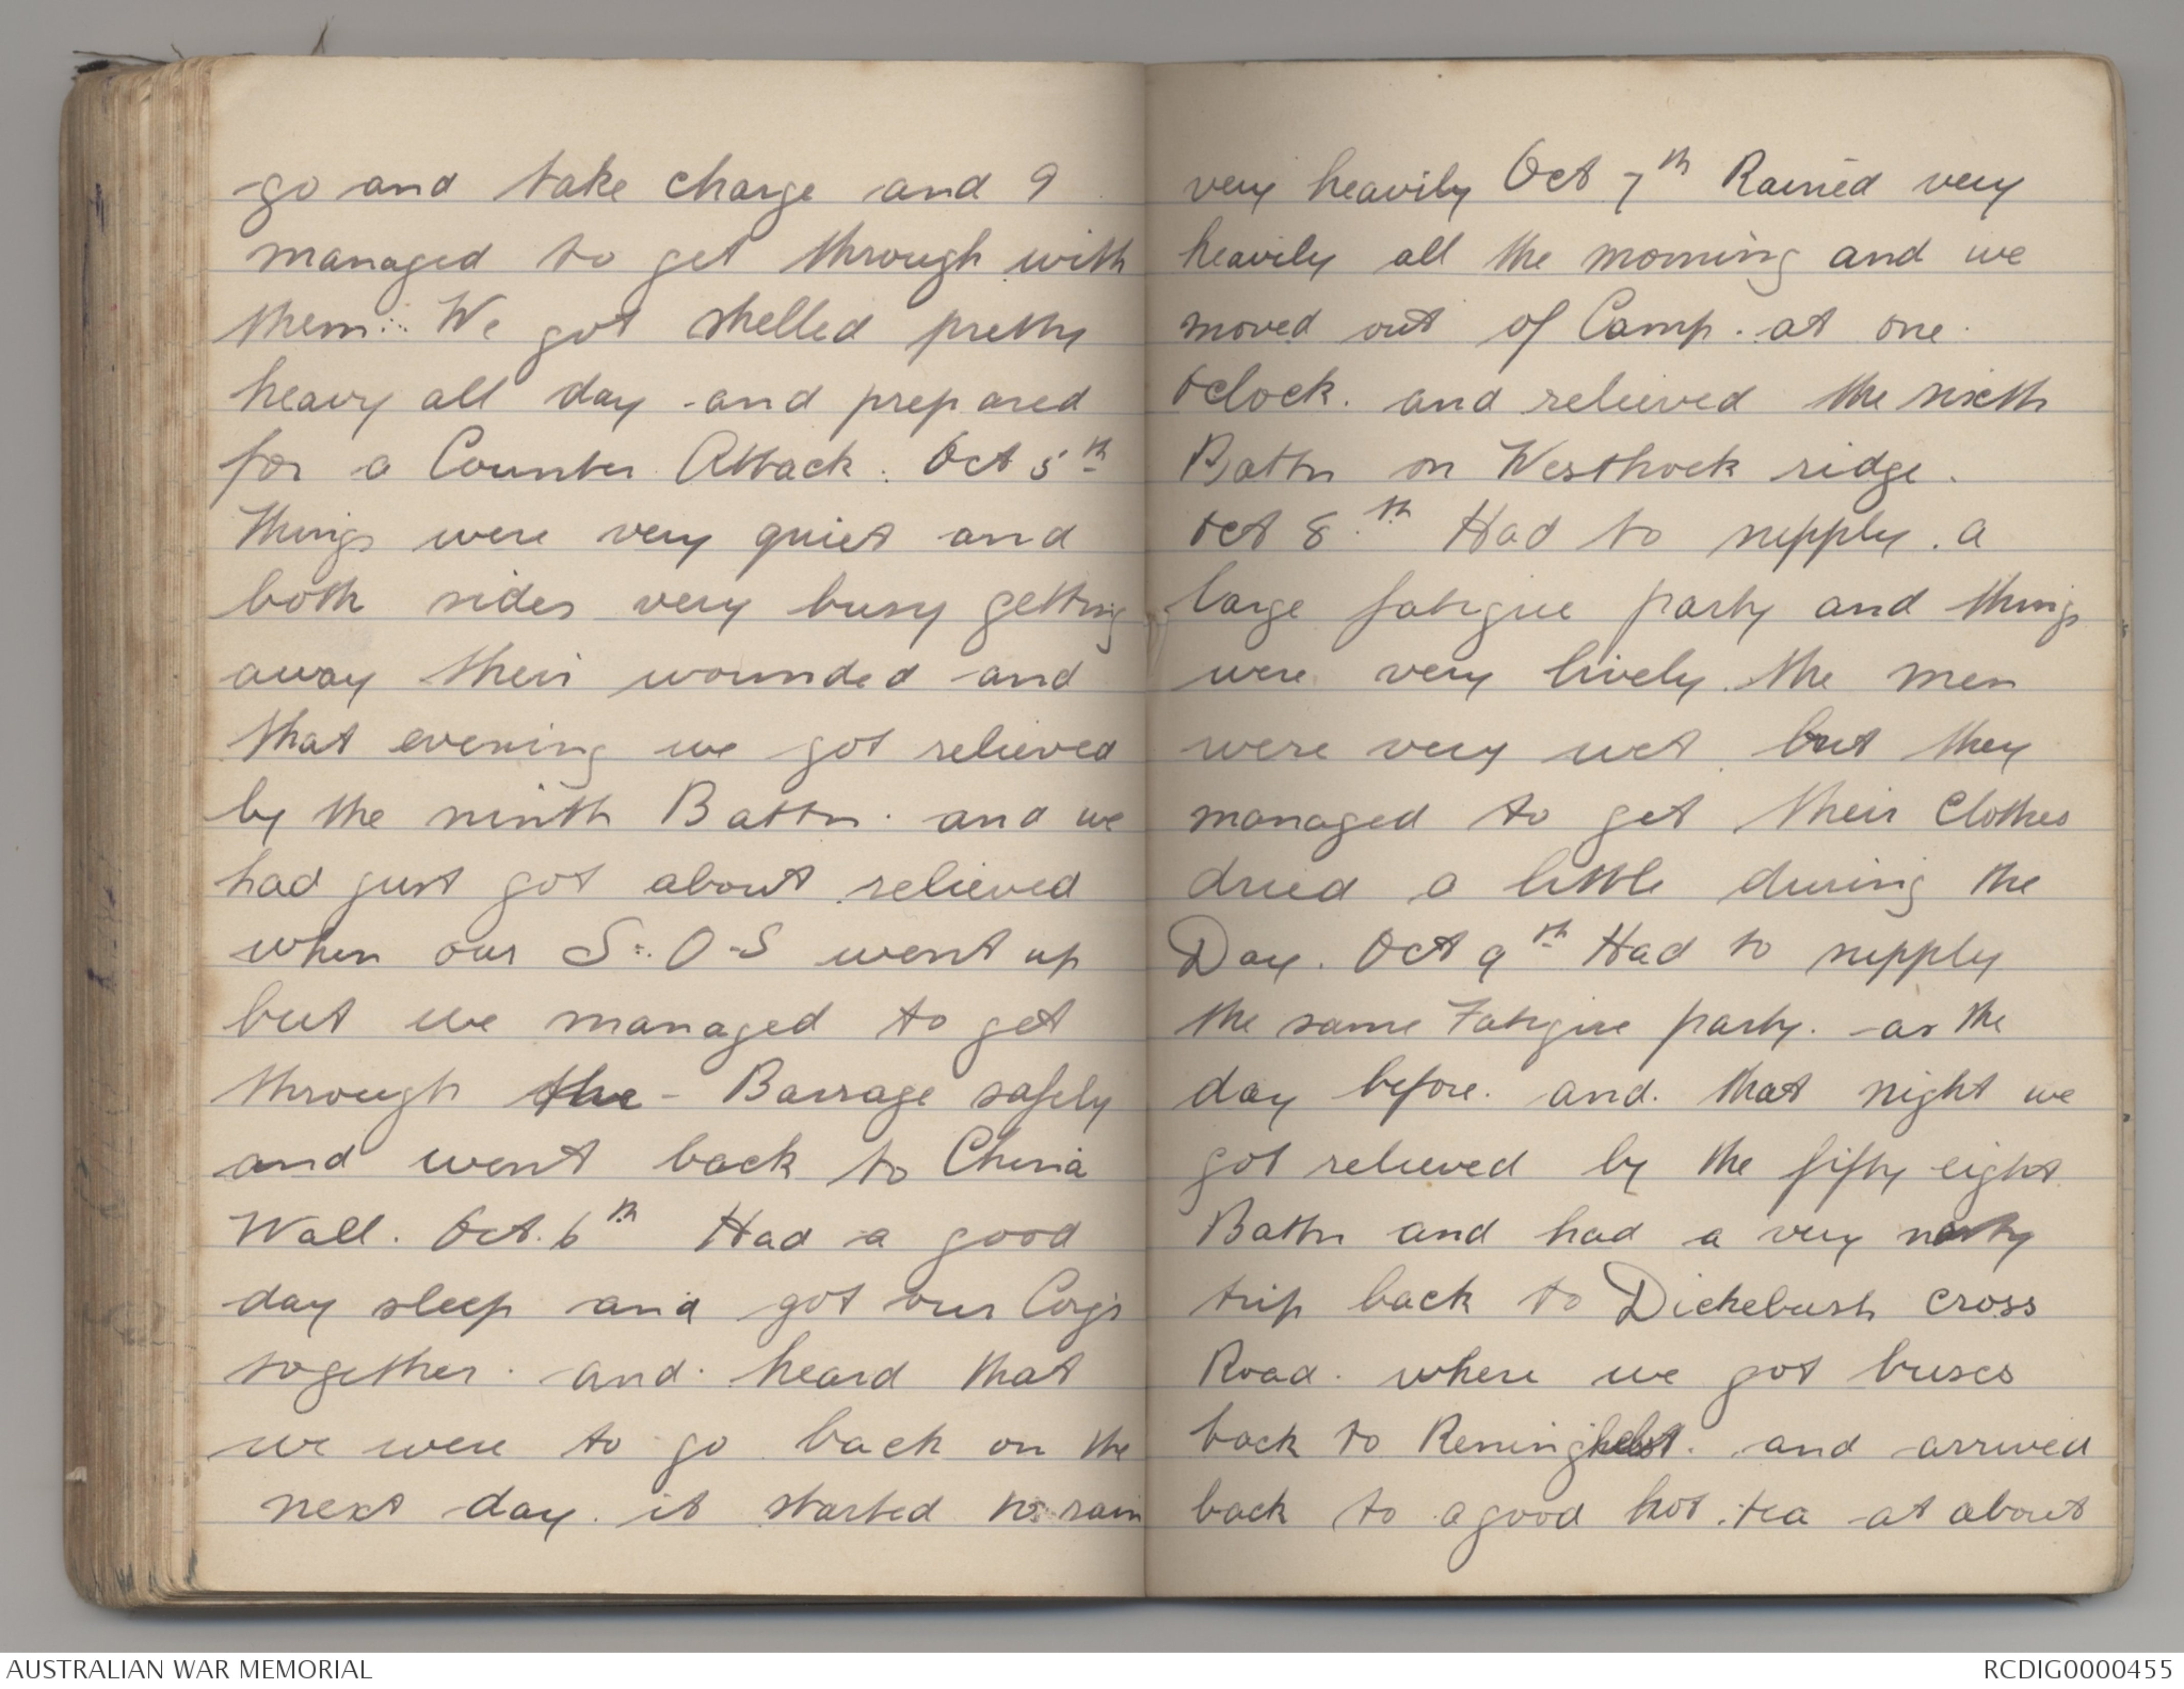 go and take charge and 9
managed to get through with
them. We got shelled pretty
heavy all day and prepared
for a Counter Attack. Oct 5th
Things were very quiet and
both sides very busy getting
away their wounded and
that evening we got relieved
by the ninth Battn. and we
had just got about relieved
when our S.O.S went up
but we managed to get
through the - Barrage safely
and went back to China
Wall. Oct. 6th Had a good
day sleep and got our Coys
together. and. heard that
we were to go back on the
next day. it started to rain
very heavily Oct 7th Rained very
heavily all the morning and we
moved out of Camp. at one.
Oclock. and relieved the sixth
Battn on Westhoek ridge.
Oct 8.th Had to supply. a
large fatigue party and things
were very lively. the men
were very wet. but they
managed to get their Clothes
dried a little during the
Day. Oct 9th Had to supply
the same Fatigue party. as the
day before. and. that night we
got relieved by the fifty eight
Battn and had a very nasty
trip back to Dickebush cross
Road. where we got buses
back to Reninghelst. and arrived
back to a good hot. tea at about
AUSTRALIAN WAR MEMORIAL
RCDIG0000455